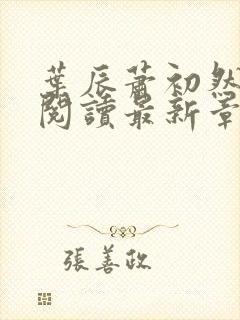 葉辰蕭初然
閱讀最新章
張善政